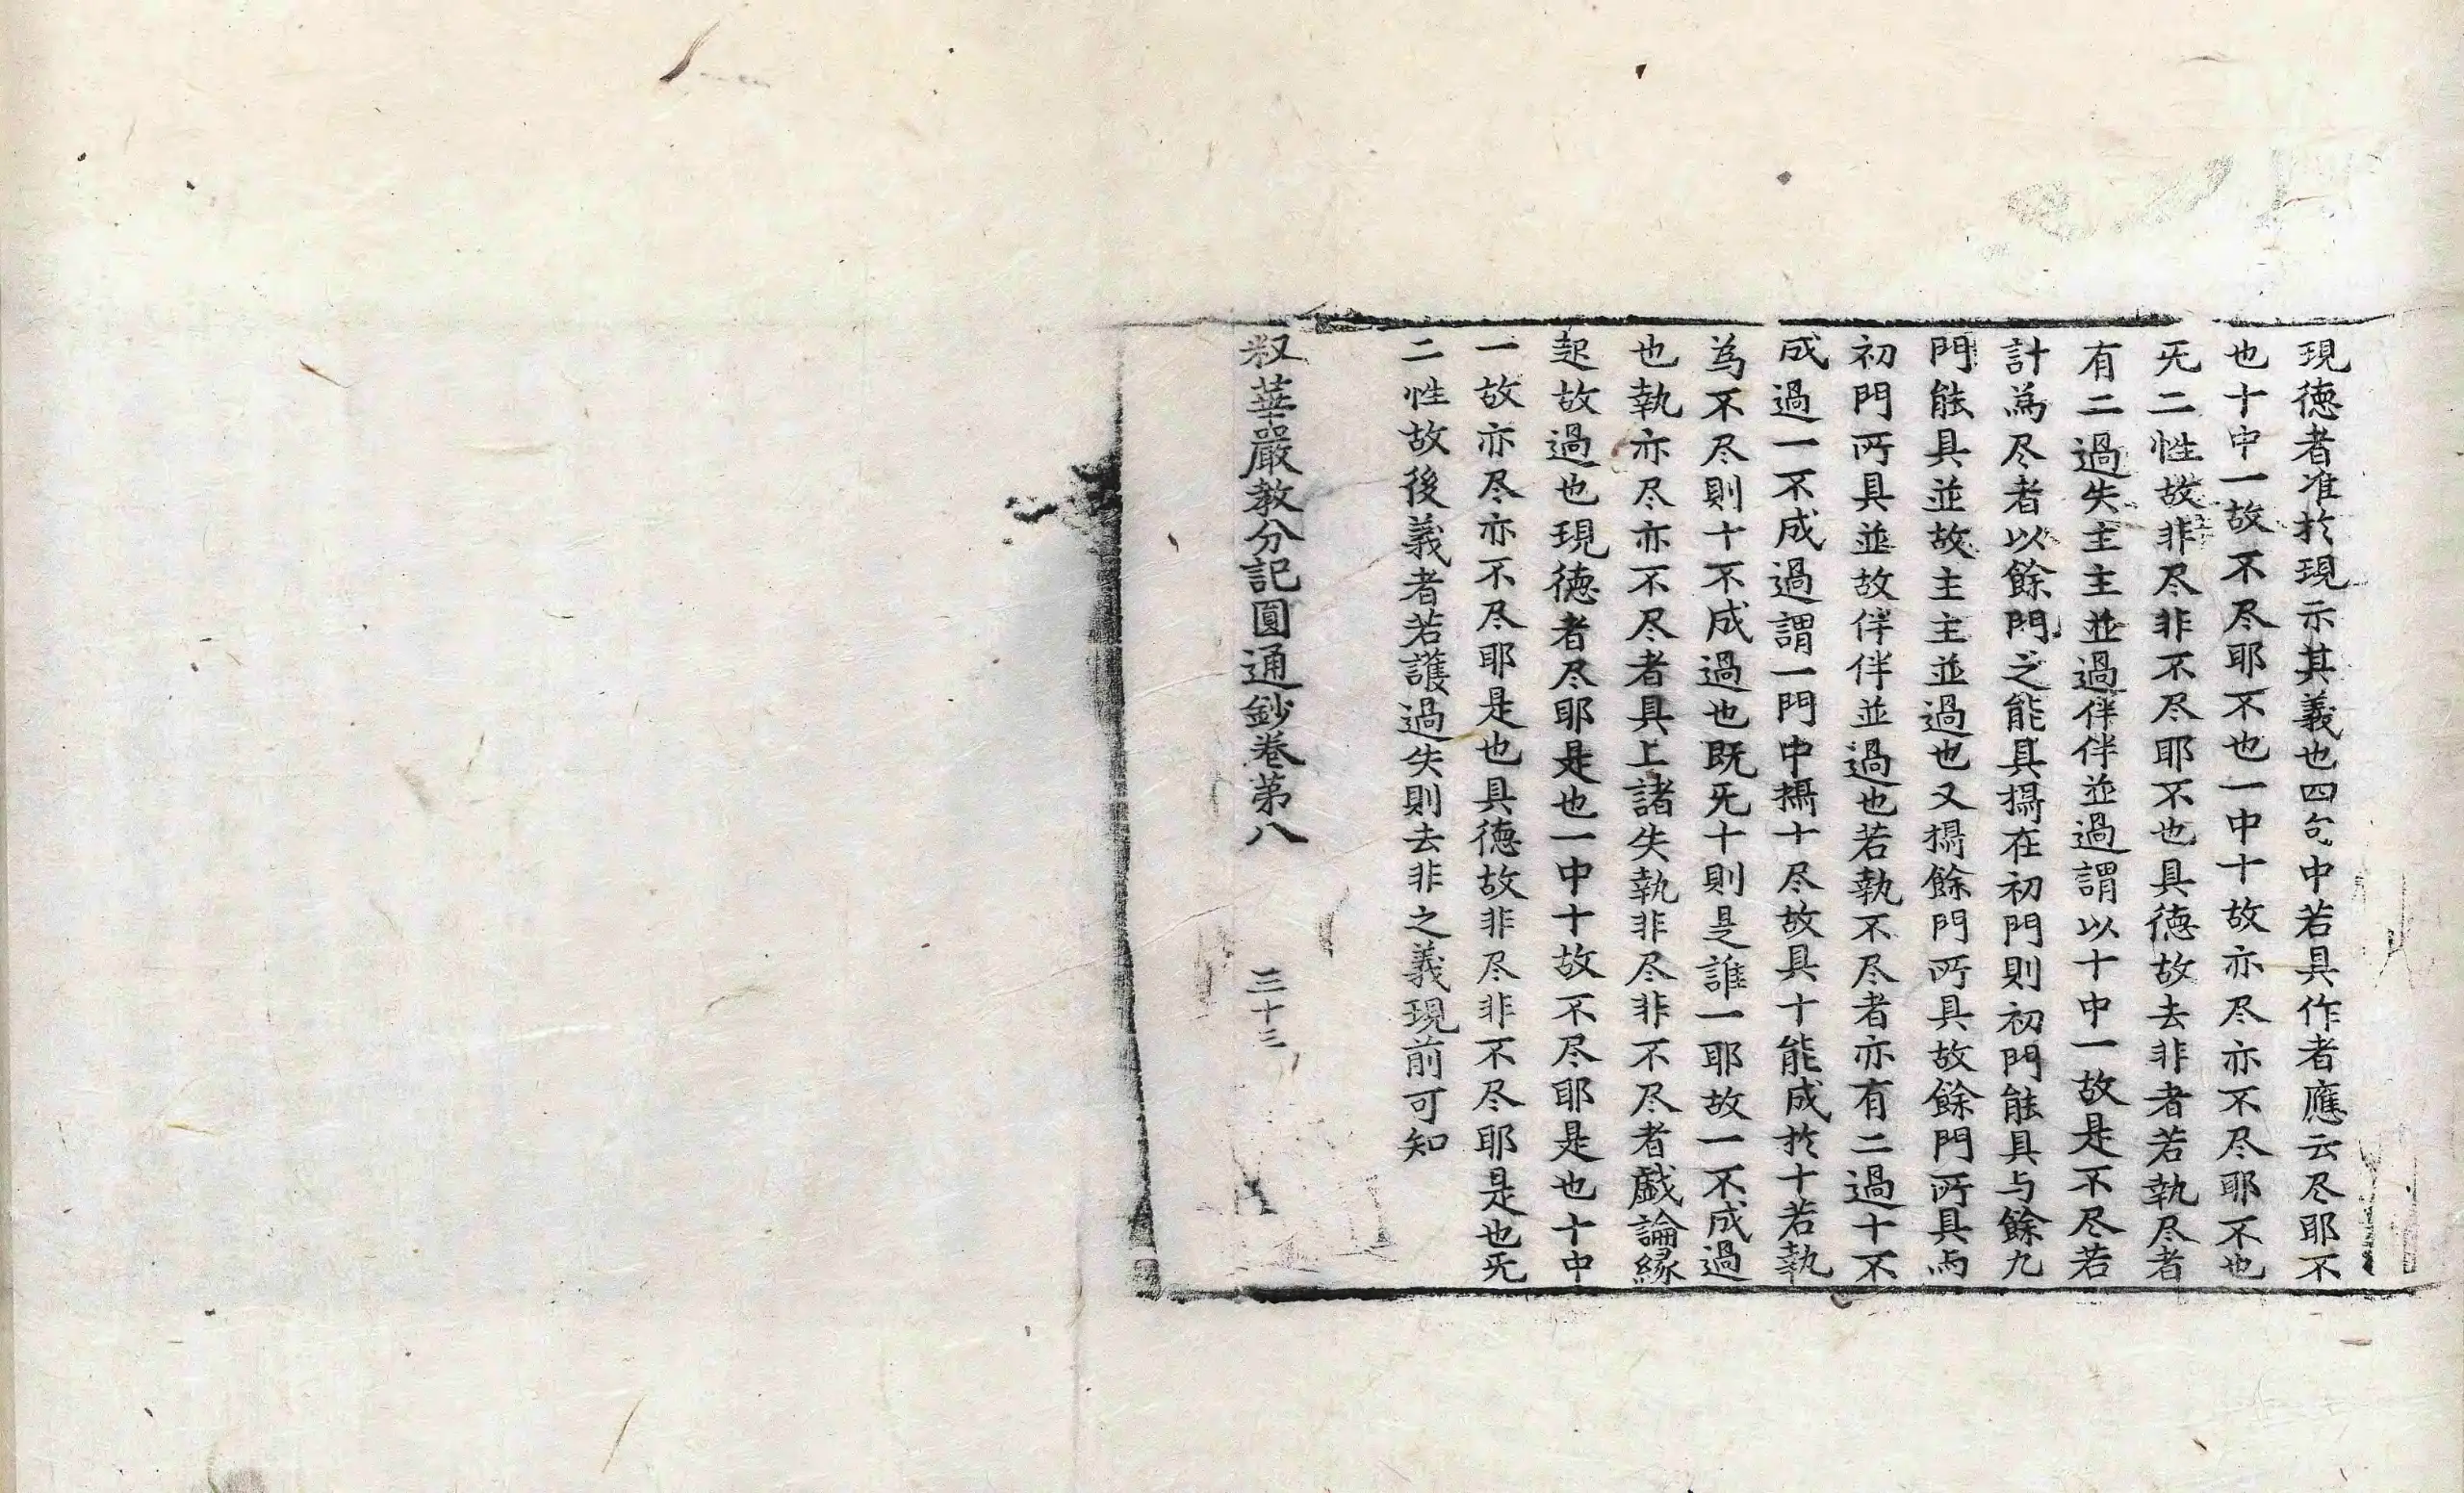 現徳者准扵現示其義也四句中若具作者應云尽耶不
也十中一故不尽耶不也一中十故亦尽亦不尽耶不也
旡二性故非尽非不尽耶不也具徳故去非者若執尽者
有二過失主主並過伴伴並過謂以十中一故是不尽若
計為尽者以餘門之能具攝在初門則初門能具与餘九
門能具並故主主並過也又攝餘門所具故餘門所具与
初門所具並故伴伴並過也若執不尽者亦有二過十不
成過一不成過謂一門中攝十尽故具十能成扵十若執
為不尽則十不成過也既旡十則是誰一耶故一不成過
也執亦尽亦不尽者具上諸失執非尽非不尽者戱論縁
起故過也現徳者尽耶是也一中十故不尽耶是也十中
一故亦尽亦不尽耶是也具徳故非尽非不尽耶是也旡
二性故後義者若護過失則去非之義現前可知
釈華嚴教分記圓通鈔卷第八 三十三